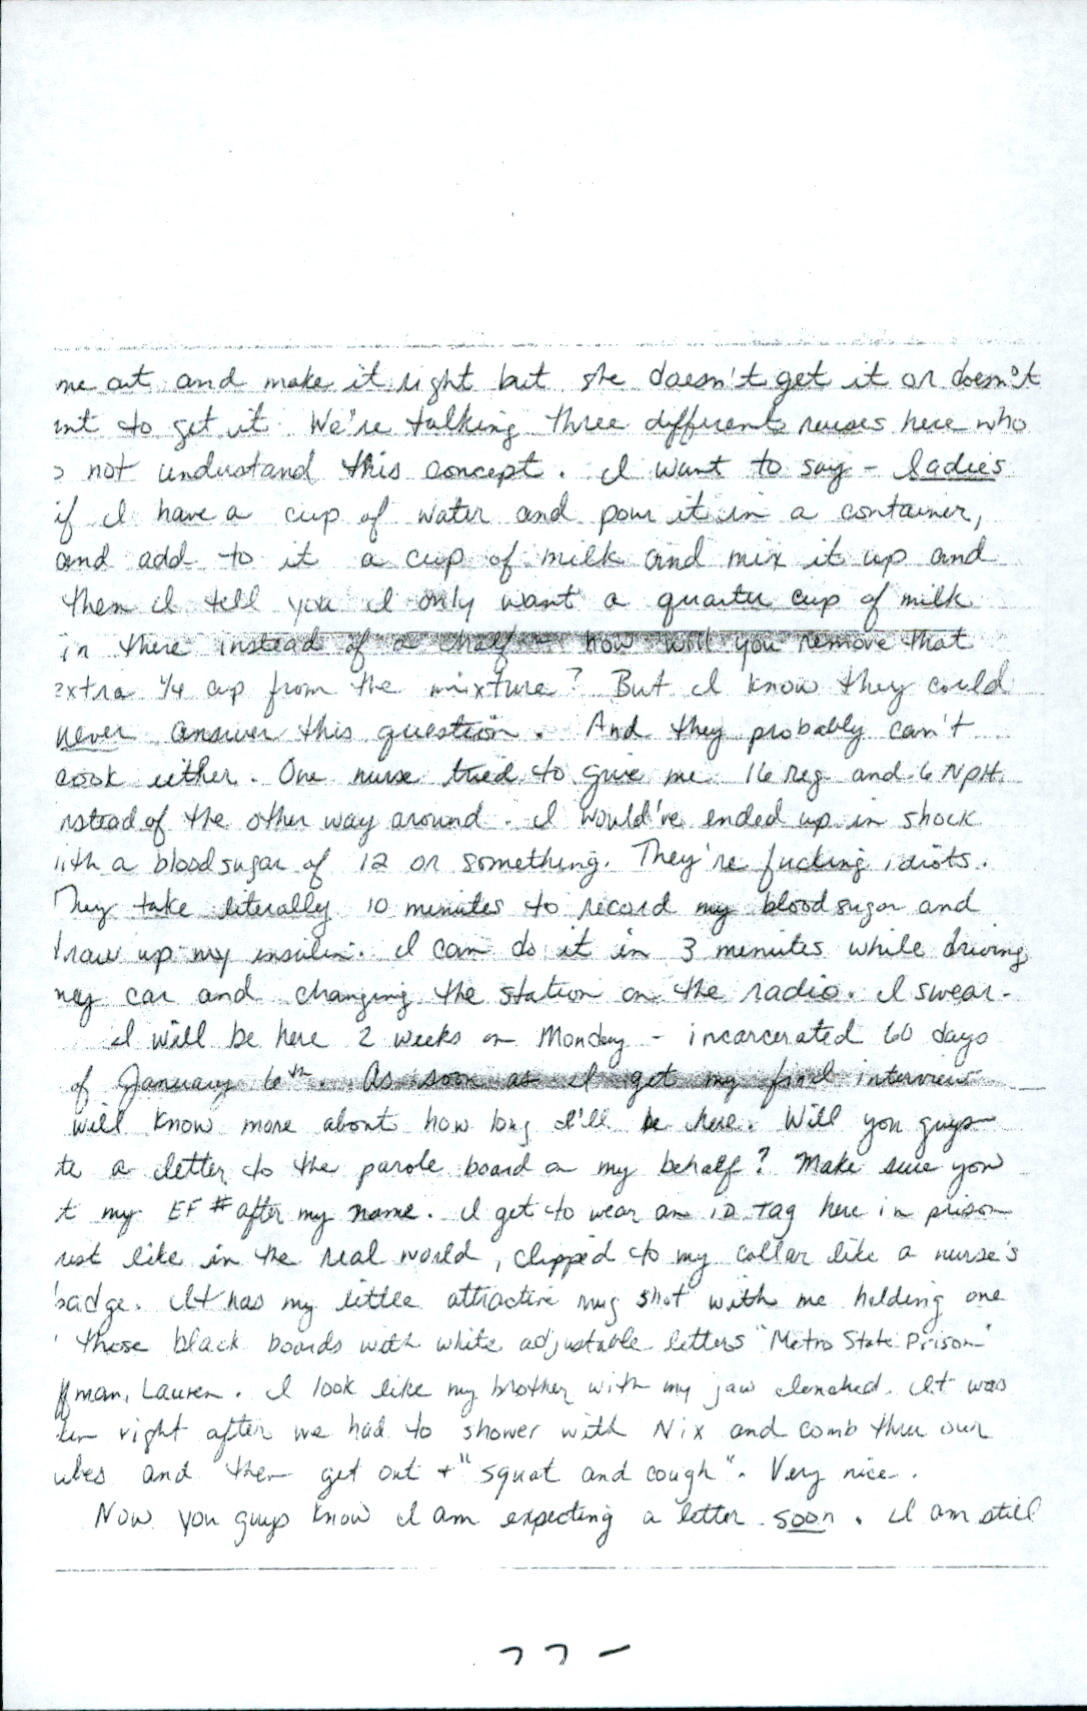 me out and make it right but she doesn't get it or doesn't
nt to get it. We're talking three different nurses here who
o not understand this concept. I want to say - ladies
if I have a cup of water and pour it in a container,
and add to it a cup of milk and mix it up and
then I tell you I only want a quarter cup of milk
in there instead of a half - how will you remove that
extra 1/4 cup from the mixture? But I know they could
never answer this question. And they probably can't
cook either. One nurse tried to give me 16 reg and 6 NPH
nstead of the other way around. I would've ended up in shock
ith a blood sugar of 12 or something. They're fucking idiots.
They take literally 10 minutes to record my blood sugar and
draw up my insulin. I can do it in 3 minutes while driving
my car and changing the station on the radio. I swear.
I will be here 2 weeks on Monday - incarcerated 60 days
of January 6th. As soon as I get my final interview
will know more about how long I'll be here. Will you guys
te a letter to the parole board on my behalf? Make sure you
t my EF # after my name. I get to wear an ID tag here in prison
ust like in the real world, clipped to my collar like a nurse's
badge. It has my little attractive mug shot with me holding one
those black boards with white adjustable letters "Metro State Prison"
ffman, Lauren. I look like my brother with my jaw clenched. It was
en right after we had to shower with Nix and comb thru our
ubes and then get out + "squat and cough". Very nice.
Now you guys know I am expecting a letter soon. I am still
77-